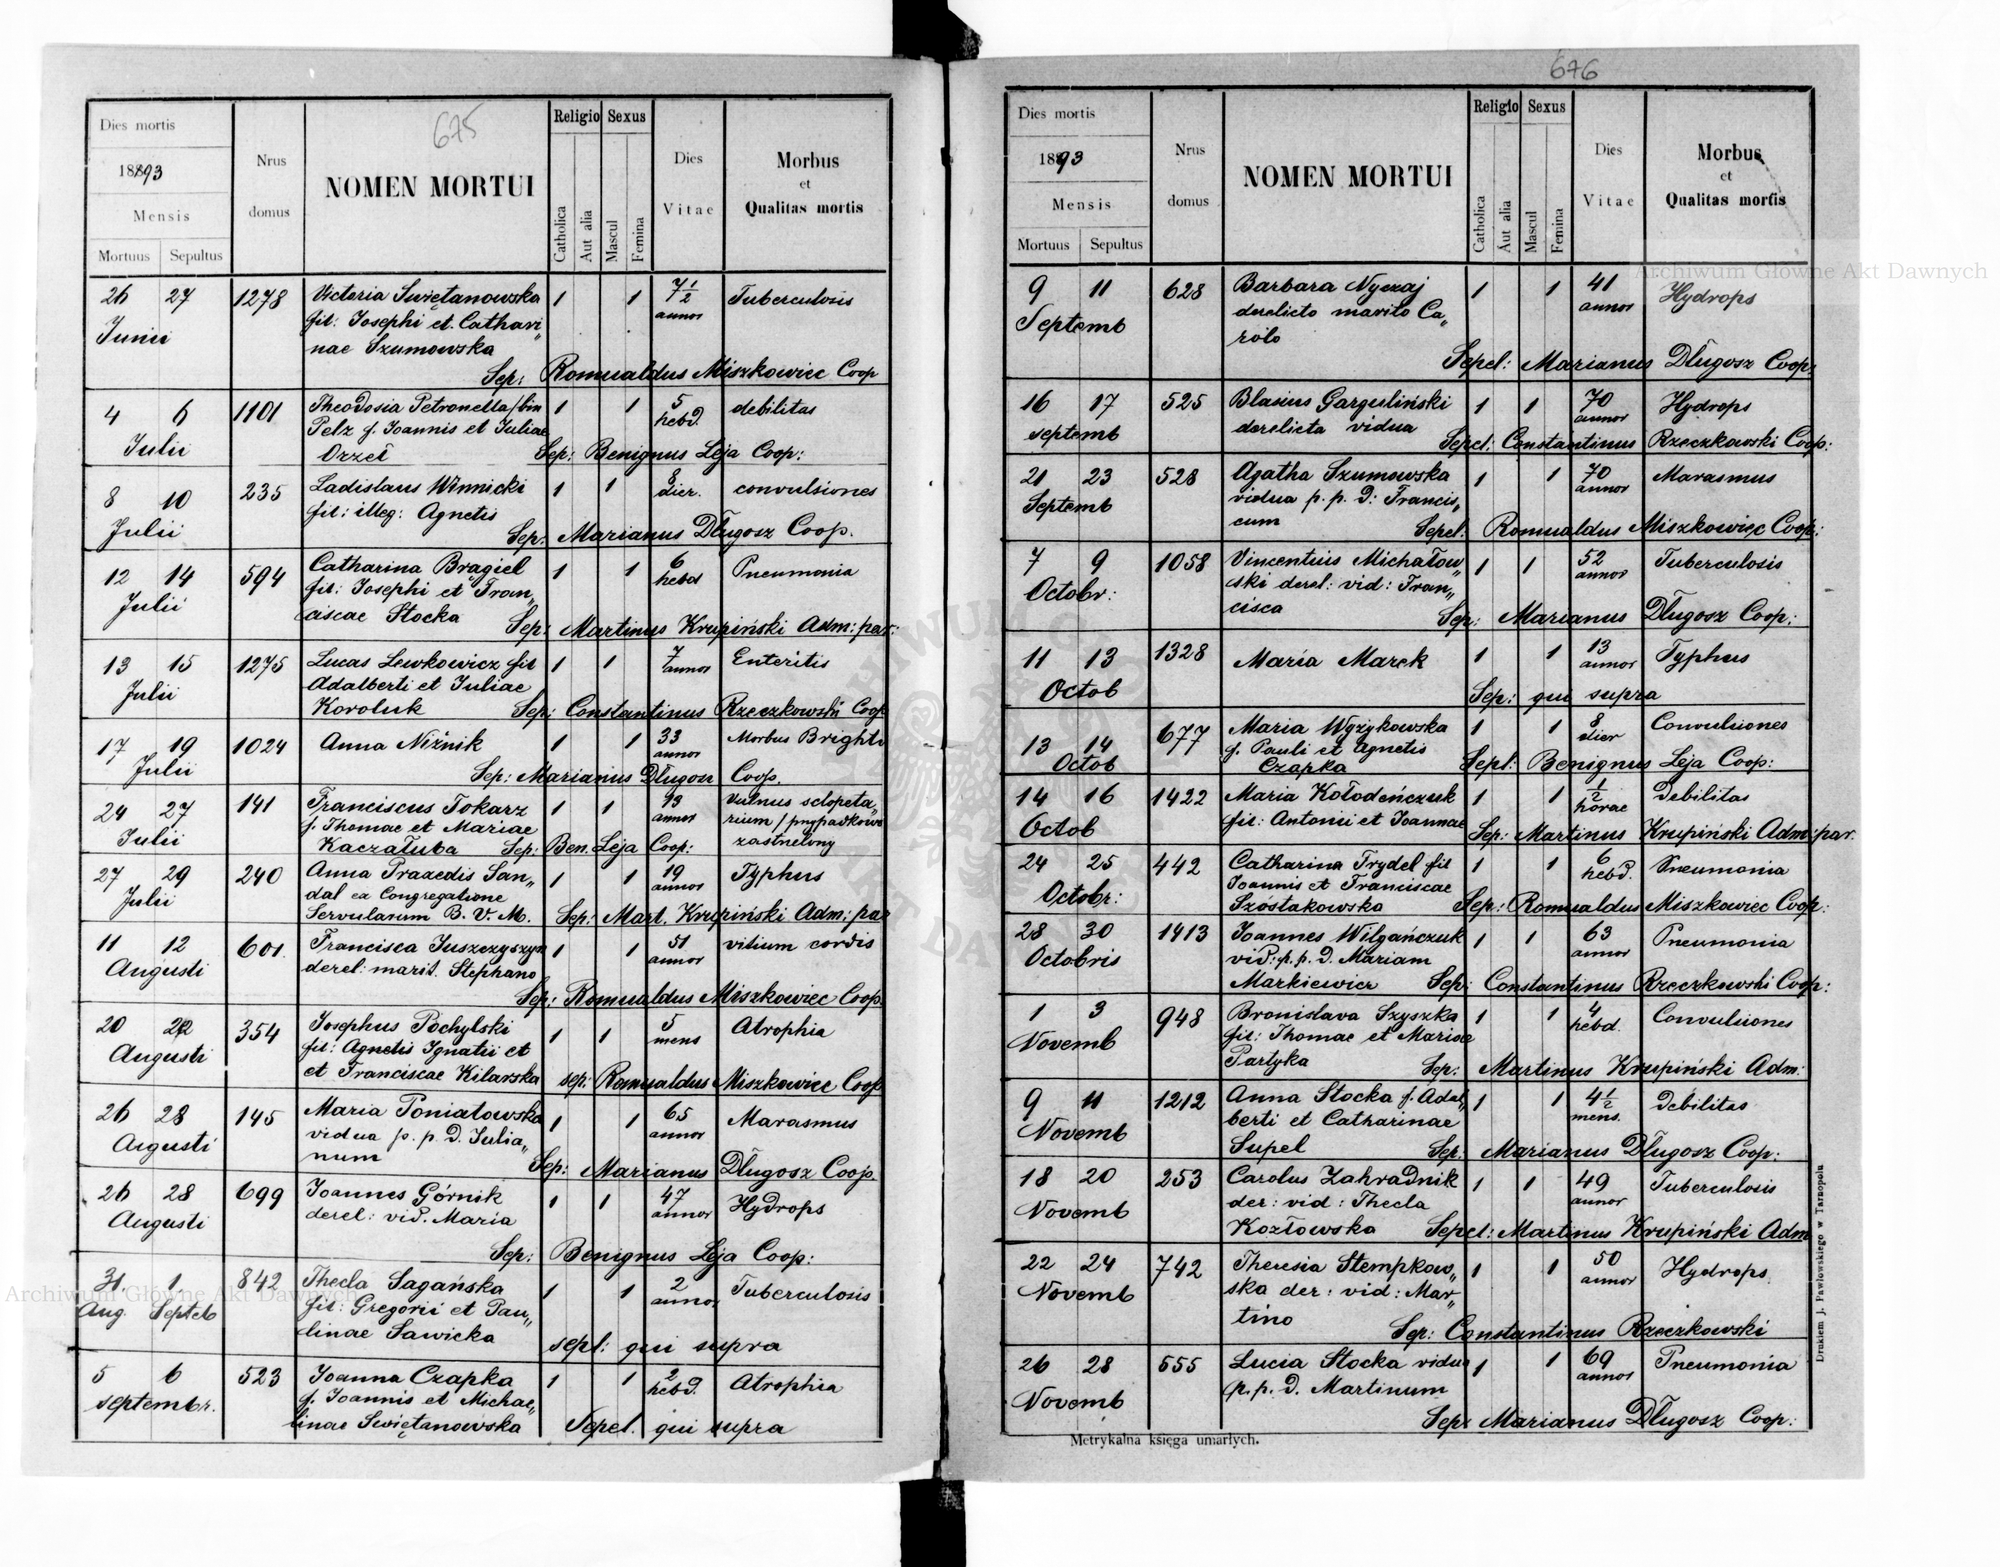 675
Dies mortis
1893
Mensis
Mortuus Sepultus
Nrus domus
NOMEN MORTUI
Religio Sexus
Catholica
Aut alia
Mascul
Femina
Dies Vitae
Morbus et Qualitas mortis
26 27 1278 Victoria Swiętanowska 1 1 7 1/2 annor Tuberculosis
Junii fil: Josephi et Cathari„
nae Szumowska
Sep: Romualdus Miszkowiec Coop
4 6 1101 Theodosia Petronella/bin 1 1 5 hebd. debilitas
Julii Pelz f. Joannis et Juliae
Orzeł Sep: Benignus Leja Coop:
8 10 235 Ladislaus Winnicki 1 1 8 dier. convulsiones
Julii fil: illeg: Agnetis
Sep: Marianus Długosz Coop.
12 14 594 Catharina Brągiel 1 1 6 hebd Pneumonia
Julii fil: Josephi et Fran„
ciscae Stocka Sep: Martinus Krupiński Adm: par:
13 15 1275 Lucas Lewkowicz fil 1 1 7 annor Enteritis
Julii Adalberti et Juliae
Koroluk Sep: Constantinus Rzeczkowski Coop
17 19 1024 Anna Niżnik 1 1 33 annor Morbus Brighti
Julii Sep: Marianus Długosz Coop.
24 27 141 Franciscus Tokarz 1 1 13 annor Vulnus sclopeta„
Julii f. Thomae et Mariae rium / przypadkowo
Kaczałuba Sep: Ben. Leja Coop: zastrzelony
27 29 240 Anna Praxedis San„ 1 1 19 annor Typhus
Julii dal ex Congregatione
Servularum B. V. M. Sep: Mart. Krupiński Adm: par
11 12 601. Francisca Juszczyszyn 1 1 51 annor vitium cordis
Augusti derel: marit. Stephano
Sep: Romualdus Miszkowiec Coop.
20 22 354 Josephus Pochylski 1 1 5 mens Atrophia
Augusti fil: Agnetis Ignatii et
et Franciscae Kilarska sep: Romualdus Miszkowiec Coop
26 28 145 Maria Poniatowska 1 1 65 annor Marasmus
Augusti vidua p. p. D. Julia„
num Sep: Marianus Długosz Coop.
26 28 699 Joannes Górnik 1 1 47 annor Hydrops
Augusti derel: vid. Maria
Sep: Benignus Leja Coop:
31 1 842 Thecla Sagańska 1 1 2 annor Tuberculosis
Aug. Septeb fil: Gregorii et Pau„
linae Sawicka sepl: qui supra
5 6 523 Joanna Czapka 1 1 2 hebd. Atrophia
septembr. f. Joannis et Michae„
linae Swiętanowska Sepel. qui supra
676
Dies mortis
1893
Mensis
Mortuus Sepultus
Nrus domus
NOMEN MORTUI
Religio Sexus
Catholica
Aut alia
Mascul
Femina
Dies Vitae
Morbus et Qualitas mortis
9 11 628 Barbara Nyczaj 1 1 41 annor Hydrops
Septemb derelicto marito Ca„
rolo
Sepel: Marianus Długosz Coop:
16 17 525 Blasius Garguliński 1 1 70 annor Hydrops
septemb derelicta vidua
Sepel: Constantinus Rzeczkowski Coop:
21 23 528 Agatha Szumowska 1 1 70 annor Marasmus
Septemb vidua p. p. D: Francis„
cum Sepel: Romualdus Miszkowiec Coop:
7 9 1058 Vincentius Michałow„ 1 1 52 annor Tuberculosis
Octobr: ski derel: vid: Fran„
cisca Sep: Marianus Długosz Coop:
11 13 1328 Maria Marek 1 1 13 annor Typhus
Octob Sep: qui supra
13 14 677 Maria Wyżykowska 1 1 8 dier Convulsiones
Octob f. Pauli et Agnetis
Czapka Sepl: Benignus Leja Coop:
14 16 1422 Maria Kołodeńczuk 1 1 1/2 horae Debilitas
Octob fil: Antonii et Joannae
Sep: Martinus Krupiński Adm: par.
24 25 442 Catharina Trydel fil 1 1 6 hebd. Pneumonia
Octobr: Joannis et Franciscae
Szostakowska Sep: Romualdus Miszkowiec Coop:
28 30 1413 Joannes Wilgańczuk 1 1 63 annor Pneumonia
Octobris vid: p. p. D. Mariam
Markiewicz Sep: Constantinus Rzeczkowski Coop:
1 3 948 Bronislava Szyszka 1 1 4 hebd. Convulsiones
Novemb fil: Thomae et Mariae
Partyka Sep: Martinus Krupiński Adm:
9 11 1212 Anna Stocka f. Adal„ 1 1 4 1/2 mens. Debilitas
Novemb berti et Catharinae
Supel Sep: Marianus Długosz Coop:
18 20 253 Carolus Zahradnik 1 1 49 annor Tuberculosis
Novemb der: vid: Thecla
Kozłowska Sepel: Martinus Krupiński Adm
22 24 742 Theresia Stempkow„ 1 1 50 annor Hydrops
Novemb ska der: vid: Mar„
tino Sep: Constantinus Rzeczkowski
26 28 555 Lucia Stocka vidua 1 1 69 annor Pneumonia
Novemb p. p. D. Martinum
Sep: Marianus Długosz Coop:
Metrykalna księga umarłych.
Drukiem J. Pawłowskiego w Tarnopolu
Archiwum Główne Akt Dawnych
Archiwum Główne Akt Dawnych
ARCHIWUM GŁÓWNE AKT DAWNYCH